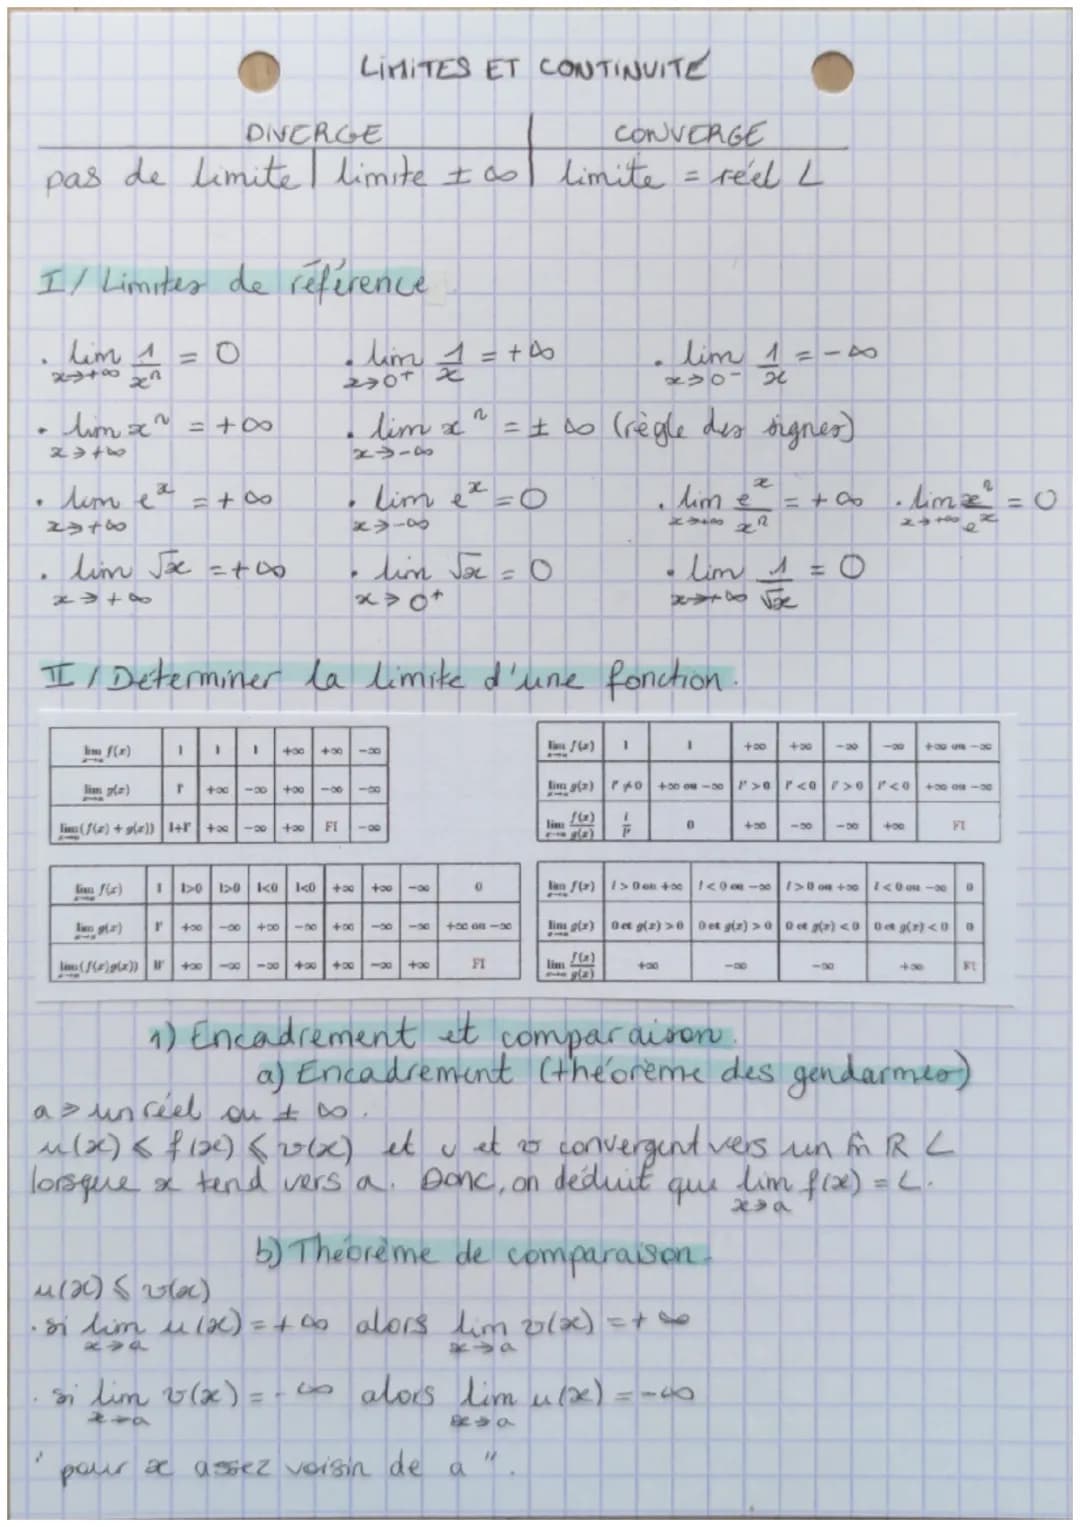 LIMITES ET CONTINUITÉ
DIVERGE | CONVERGE
pas de limite | limite ± ∞ | limite = réel L
I / Limites de référence
. lim x→+∞ 1/xⁿ = 0 . lim x→0⁺ 1/x = +∞ . lim x→0⁻ 1/x = -∞
. lim x→+∞ xⁿ = +∞ . lim x→-∞ xⁿ = ± ∞ (règle des signes)
. lim x→+∞ eˣ = +∞ . lim x→-∞ eˣ = 0 . lim x→+∞ eˣ/xⁿ = +∞ . lim x→+∞ xⁿ/eˣ = 0
. lim x→+∞ √x = +∞ . lim x→0⁺ √x = 0 . lim x→+∞ 1/√x = 0
II / Déterminer la limite d'une fonction.
lim f(x) | l | l | l | +∞ | +∞ | -∞
lim g(x) | l' | +∞ | -∞ | +∞ | -∞ | -∞
lim (f(x) + g(x)) | l+l' | +∞ | -∞ | +∞ | FI | -∞
lim f(x) | l | l | +∞ | +∞ | -∞ | -∞ | +∞ ou -∞
lim g(x) | l' ≠ 0 | +∞ ou -∞ | l' > 0 | l' < 0 | l' > 0 | l' < 0 | +∞ ou -∞
lim f(x)/g(x) | l/l' | 0 | +∞ | -∞ | -∞ | +∞ | FI
lim f(x) | l | l>0 | l>0 | l<0 | l<0 | +∞ | +∞ | -∞ | 0
lim g(x) | l' | +∞ | -∞ | +∞ | -∞ | +∞ | -∞ | -∞ | +∞ ou -∞
lim (f(x)g(x)) | ll' | +∞ | -∞ | -∞ | +∞ | +∞ | -∞ | +∞ | FI
lim f(x) | l > 0 ou +∞ | l < 0 ou -∞ | l > 0 ou +∞ | l < 0 ou -∞ | 0
lim g(x) | 0 et g(x) > 0 | 0 et g(x) > 0 | 0 et g(x) < 0 | 0 et g(x) < 0 | 0
lim f(x)/g(x) | +∞ | -∞ | -∞ | +∞ | FI
1) Encadrement et comparaison.
a) Encadrement (théorème des gendarmes)
a → un réel ou ± ∞.
u(x) ≤ f(x) ≤ v(x) et u et v convergent vers un m̂ R L
lorsque x tend vers a. Donc, on déduit que lim x→a f(x) = L.
b) Théorème de comparaison.
u(x) ≤ v(x)
. si lim x→a u(x) = +∞ alors lim x→a v(x) = +∞
. si lim x→a v(x) = -∞ alors lim x→a u(x) = -∞
" pour x assez voisin de a ".